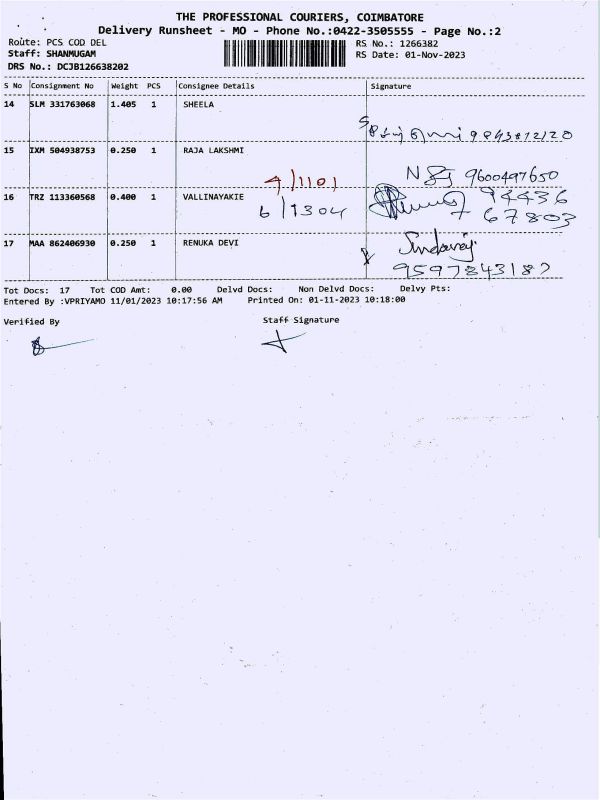 THE PROFESSIONAL COURIERS, COIMBATORE
Delivery Runsheet - MO - Phone No.:0422-3505555 - Page No.:2
Route: PCS COD DEL RS No.: 1266382
Staff: SHANMUGAM RS Date: 01-Nov-2023
DRS No.: DCJB126638202
S No Consignment No Weight PCS Consignee Details Signature
14 SLM 331763068 1.405 1 SHEELA
15 IXM 504938753 0.250 1 RAJA LAKSHMI
9600497650
4/1101
16 TRZ 113360568 0.400 1 VALLINAYAKIE 94436
6/1304 67803
17 MAA 862406930 0.250 1 RENUKA DEVI
9597843187
Tot Docs: 17 Tot COD Amt: 0.00 Delvd Docs: Non Delvd Docs: Delvy Pts:
Entered By :VPRIYAMO 11/01/2023 10:17:56 AM Printed On: 01-11-2023 10:18:00
Verified By Staff Signature